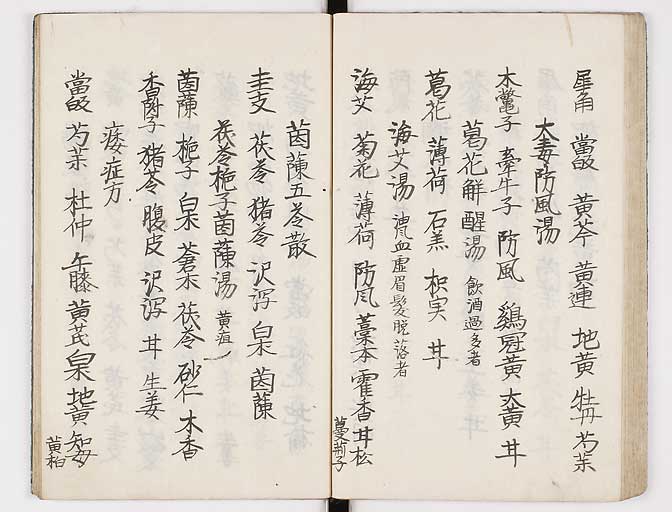 犀角 當皈 黄芩 黄連 地黄 牡丹 芍茱
大毒防風湯
木鱉子 牽牛子 防風 鷄冠黄 大黄 甘
葛花解醒湯 飲酒過多者
葛花 薄荷 石羔 枳実 甘
海艾湯 油風血虚眉髪脱落者
海艾 菊花 薄荷 防風 藁本 霍香 甘松
蔓荊子
茵蔯五苓散
圭支 茯苓 猪苓 沢瀉 白朮 茵蔯
茯苓梔子茵蔯湯 黄疸一
茵蔯 梔子 白朮 蒼朮 茯苓 砂仁 木香
香附子 猪苓 腹皮 沢瀉 甘 生姜
痿症方
當皈 芍茱 杜仲 午膝 黄芪 白朮 地黄 知母
黄柏